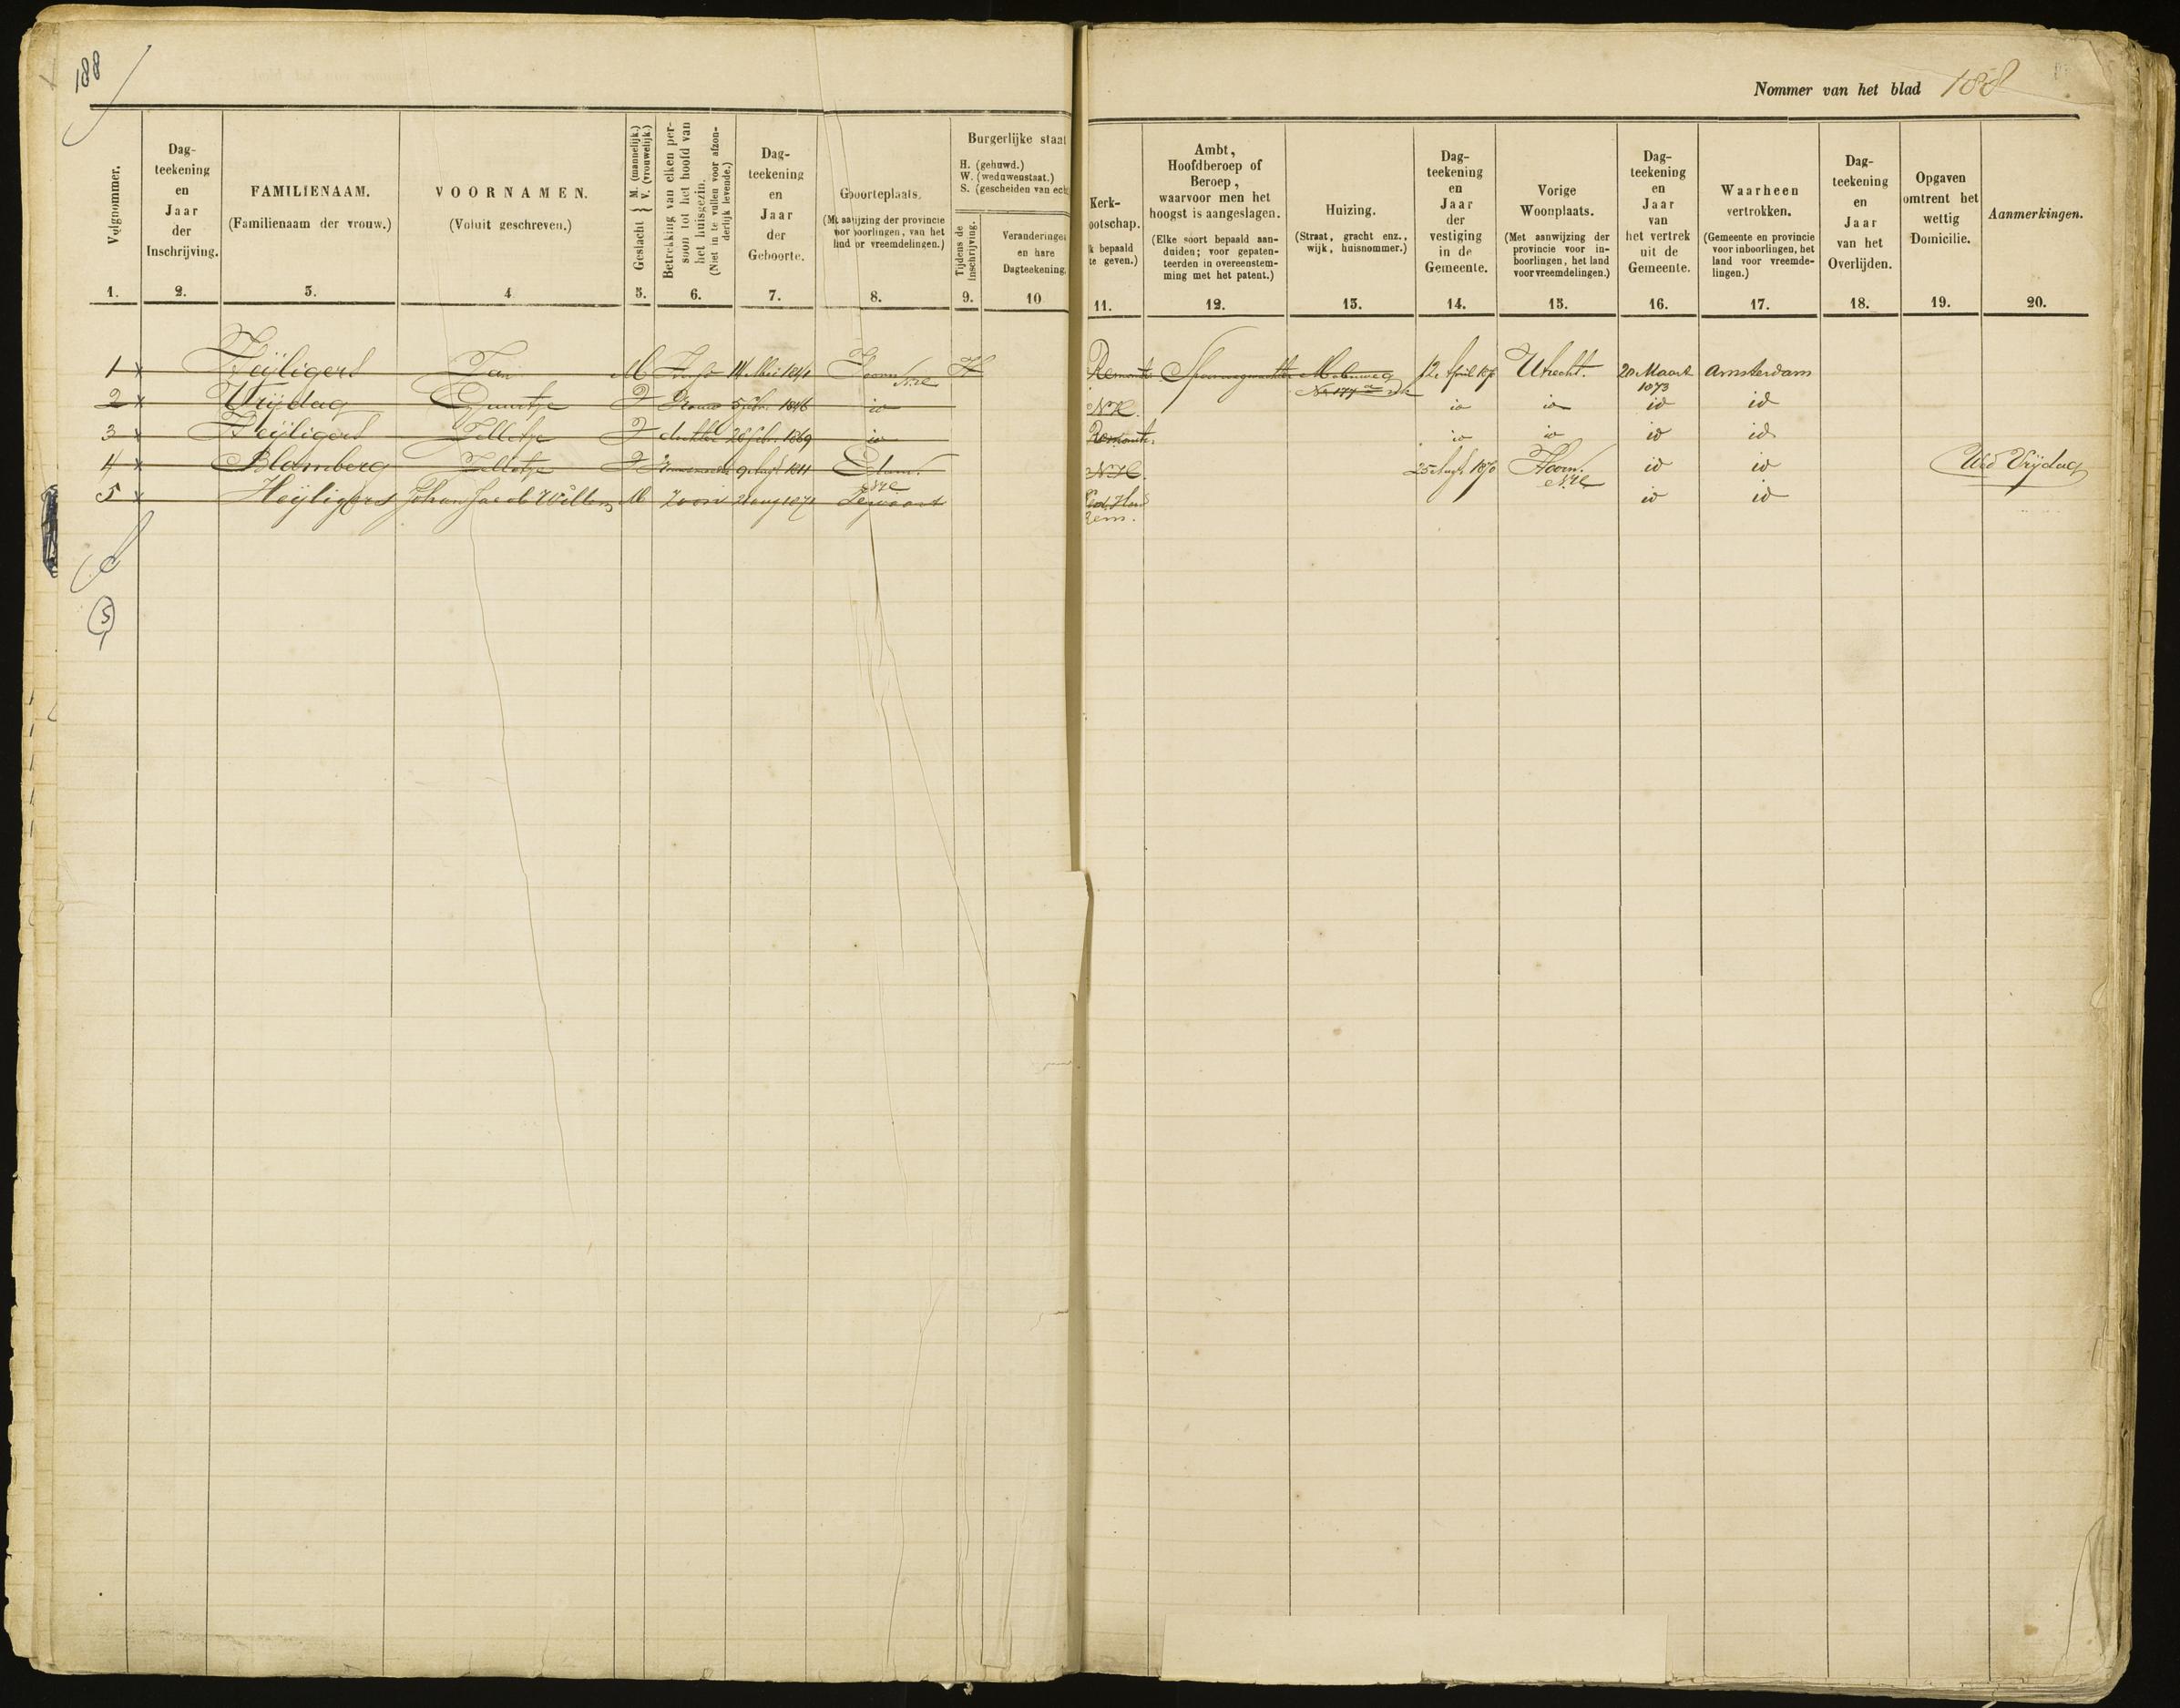 188
Nommer van het blad 188
Volgnommer.
Dag-
teekening
en
Jaar
der
Inschrijving.
FAMILIENAAM.
(Familienaam der vrouw.)
VOORNAMEN.
(Voluit geschreven.)
Geslacht { M. (mannelijk.) V. (vrouwelijk.)
Betrekking van elken per-
soon tot het hoofd van
het huisgezin.
(Niet in te vullen voor afzon-
derlijk levende.)
Dag-
teekening
en
Jaar
der
Geboorte.
Geboorteplaats.
(Met aanwijzing der provincie
voor inboorlingen, van het
land voor vreemdelingen.)
Burgerlijke staat
H. (gehuwd.)
W. (weduwenstaat.)
S. (gescheiden van echt
Tijdens de
inschrijving.
Veranderingen
en hare
Dagteekening.
Kerk-
ootschap.
k bepaald
te geven.)
Ambt,
Hoofdberoep of
Beroep,
waarvoor men het
hoogst is aangeslagen.
(Elke soort bepaald aan-
duiden; voor gepaten-
teerden in overeenstem-
ming met het patent.)
Huizing.
(Straat, gracht enz.,
wijk, huisnommer.)
Dag-
teekening
en
Jaar
der
vestiging
in de
Gemeente.
Vorige
Woonplaats.
(Met aanwijzing der
provincie voor in-
boorlingen, het land
voor vreemdelingen.)
Dag-
teekening
en
Jaar
van
het vertrek
uit de
Gemeente.
Waarheen
vertrokken.
(Gemeente en provincie
voor inboorlingen, het
land voor vreemde-
lingen.)
Dag-
teekening
en
Jaar
van het
Overlijden.
Opgaven
omtrent het
wettig
Domicilie.
Aanmerkingen.
1. 2. 3. 4 5. 6. 7. 8. 9. 10 11. 12. 13. 14. 15. 16. 17. 18. 19. 20.
1 x Heijligers Jan M Hoofd 14 Mei 1841 Hoorn H Remonst Spoorwegwachter Molenweg 12 April 1870 Utrecht. 20 Maart Amsterdam
NH No 177 1873
2 x Vrijdag Guurtje V Vrouw 1846 id NH. id id id id
3 x Heijligers Jelletje V dochter 28 Febr. 1869 id Remonstr. id id id id
4 x Blamberg Jelletje V 1811 Edam NH. 25 Aug. 1870 Hoorn. id id Wed Vrijdag
NH NH
5 x Heijligers Johan Jacob Willem M Zoon 2 aug 1871 id id
Rem.
5